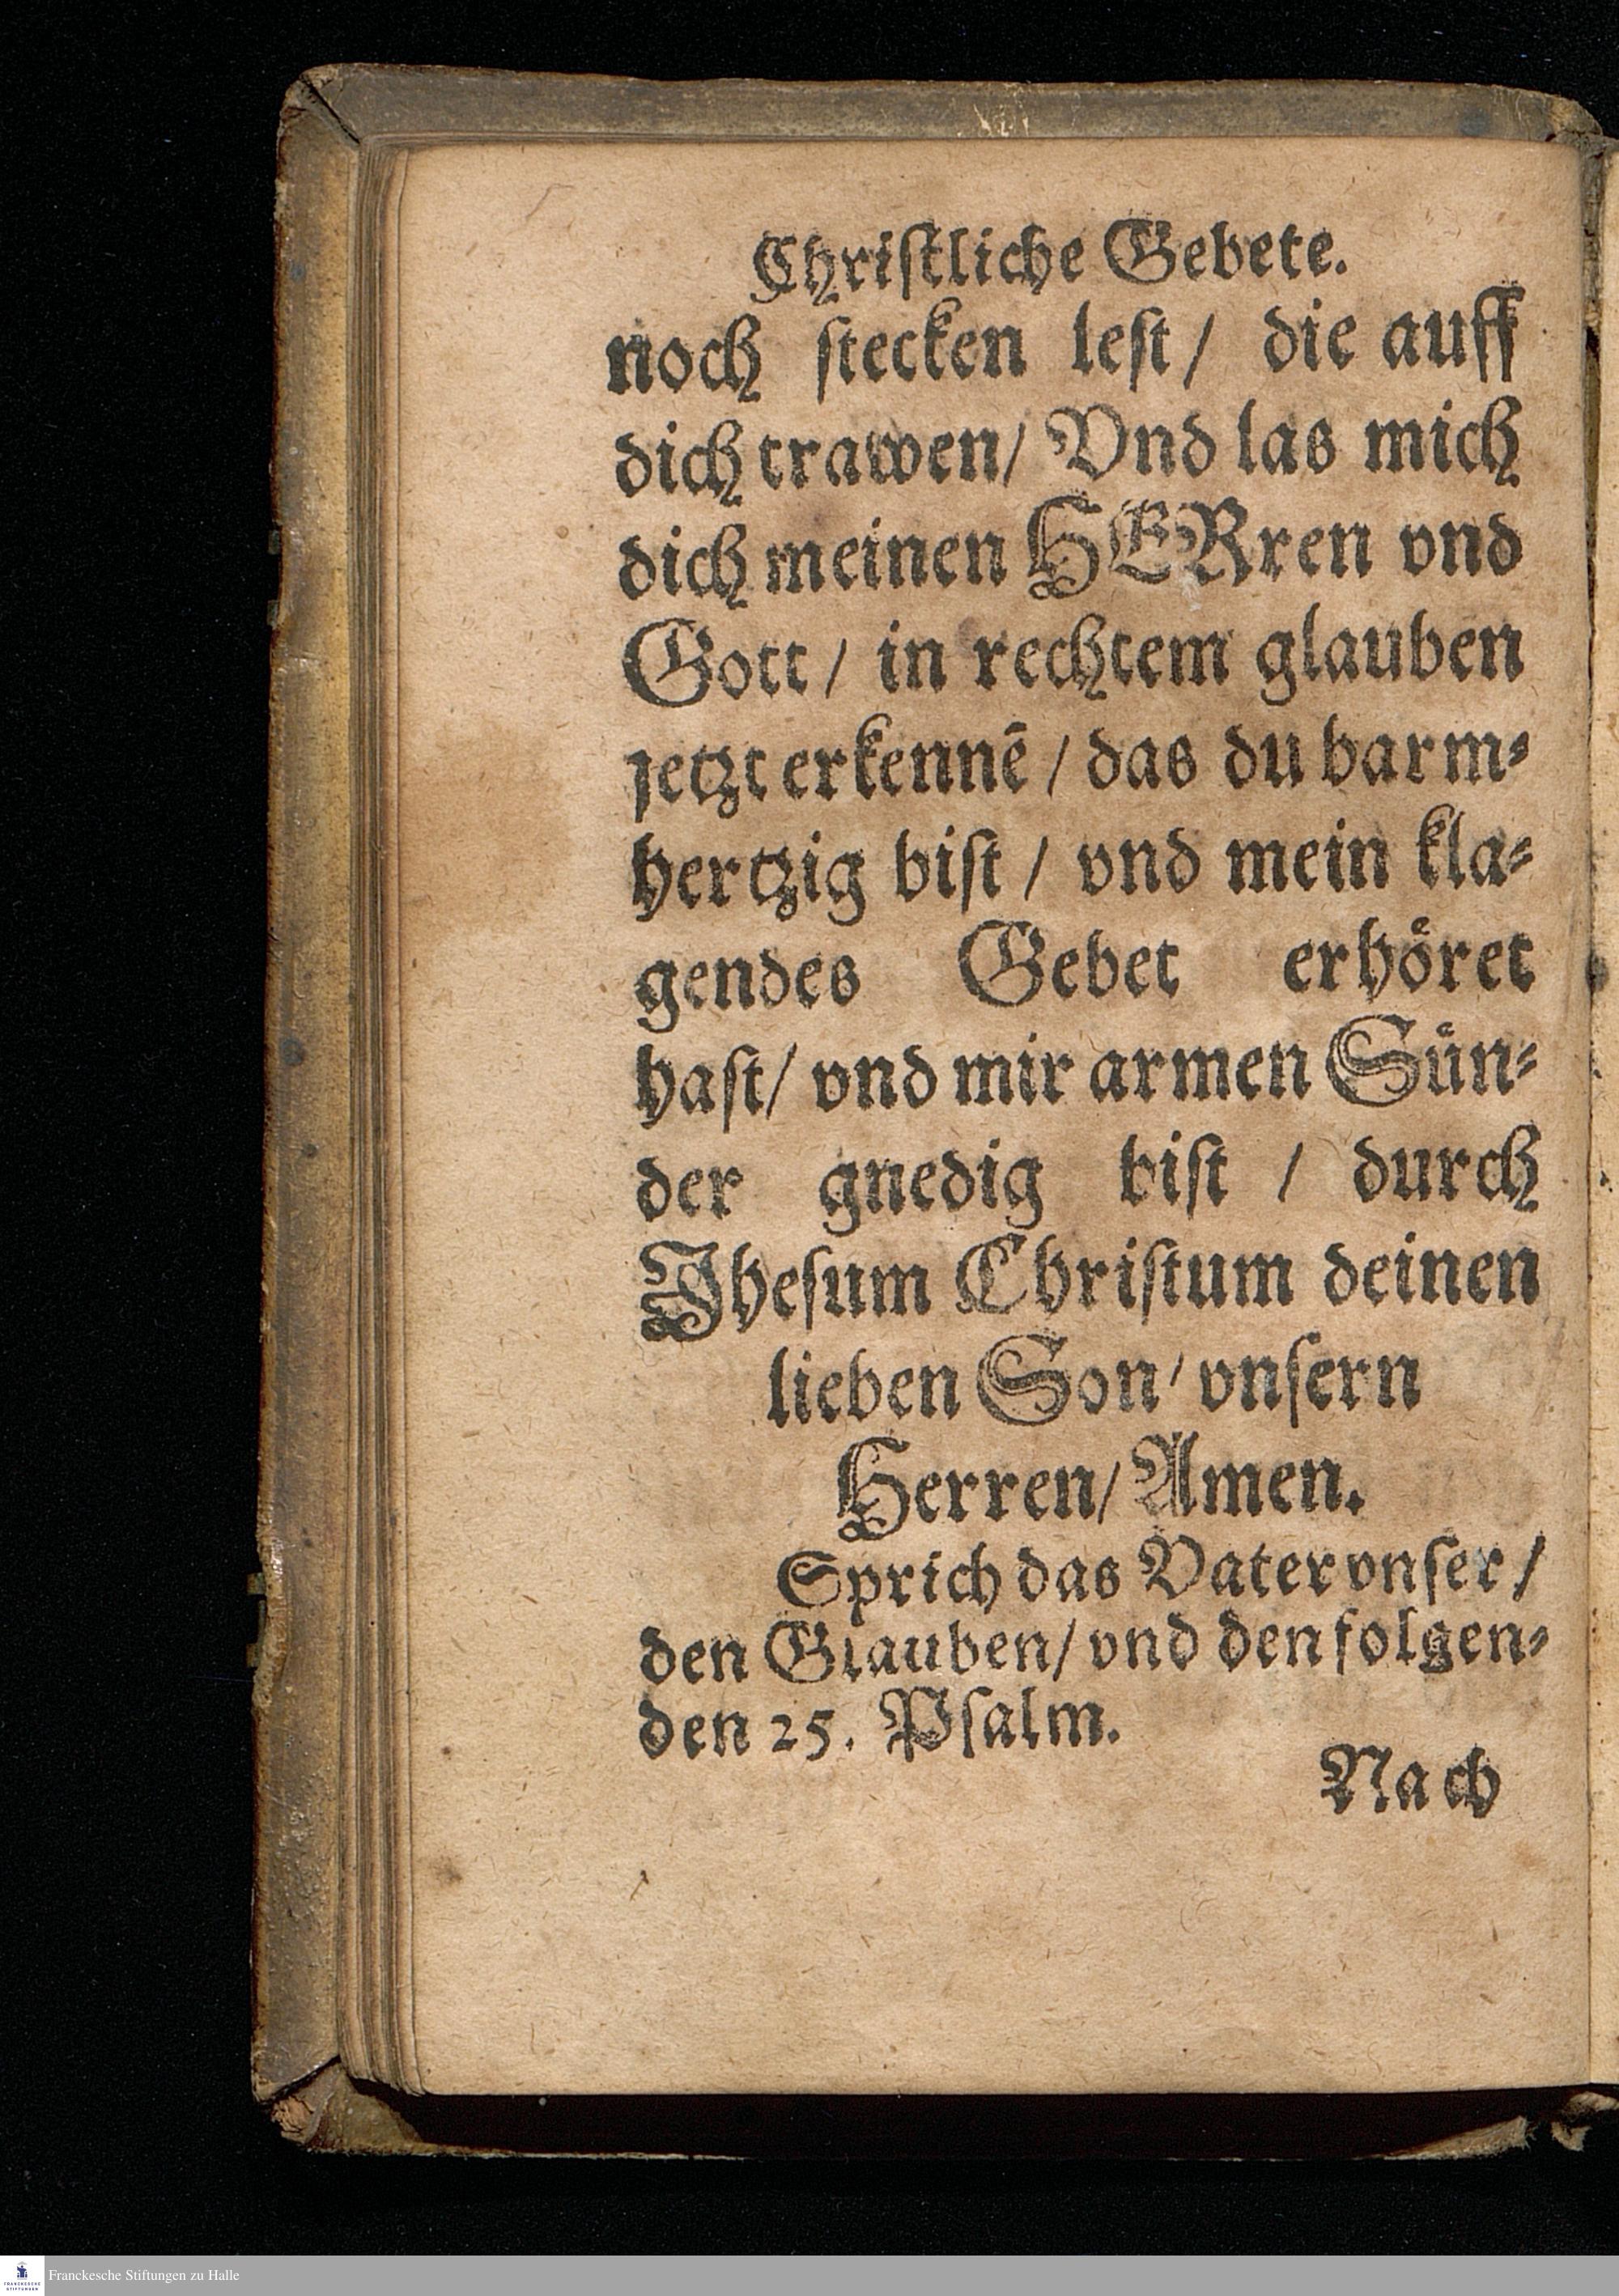 Christliche Gebete.
noch stecken lest / die auff
dich trawen / Vnd las mich
dich meinen HERren vnd
Gott / in rechtem glauben
jetzt erkennē / das du barm⸗
hertzig bist / vnd mein kla⸗
gendes Gebet erhöret
hast / vnd mir armen Sün⸗
der gnedig bist / durch
Jhesum Christum deinen
lieben Son / vnsern
Herren / Amen.
Sprich das Vater vnser /
den Glauben / vnd den folgen⸗
den 25. Psalm.
Nach
FRANCKESCHE STIFTUNGEN
Franckesche Stiftungen zu Halle